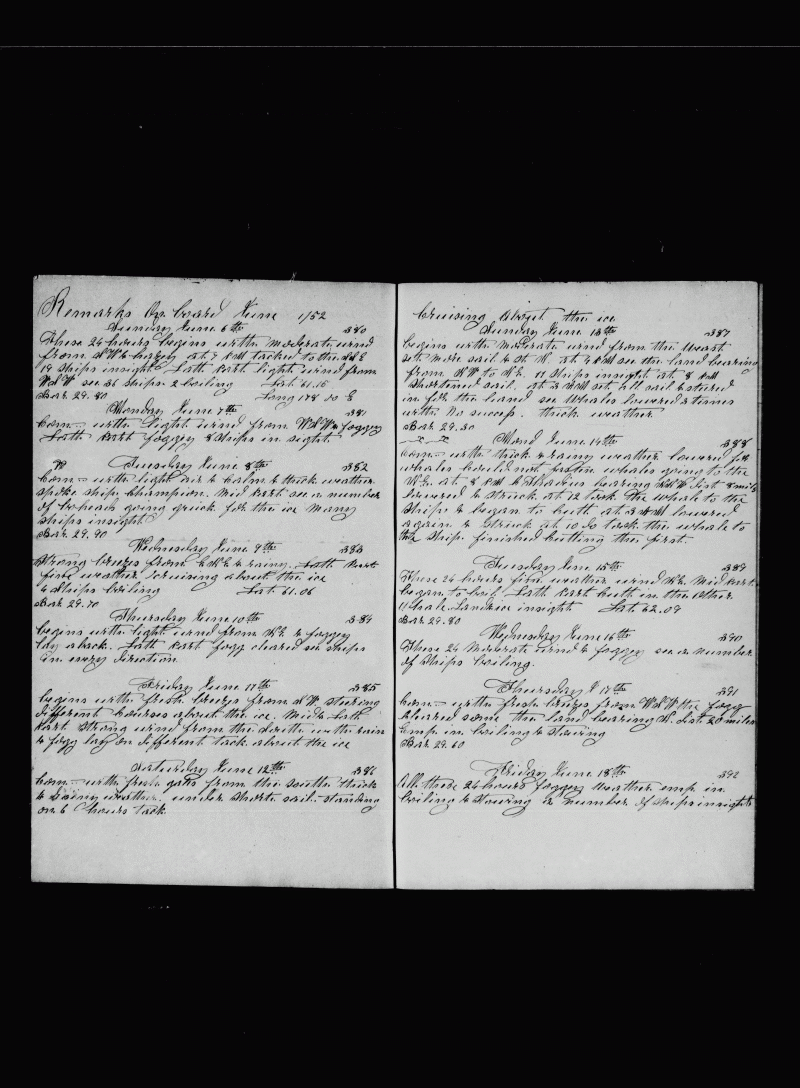 Remarks On board June 1/52
Sunday June 6th 380
These 24 hours begins with moderate wind
from at 7 PM tacked to the
19 ships insight Lath Part light wind from
see 36 ships 2 boiling Lat 61.15
Bar 29.80 Long 178 30 E
Monday June 7th 381
Com— with light wind from foggy
Lath Part foggy 8 ships in sight
Tuesday June 8th 382
Com— with light air & calm & thick weather
spoke ship Champion. Mid Part see a number
of boheads going quick for the ice many
ships insight
Bar 29.90
Wednesday June 9th 383
Strong breezes from & rainy. Lath Part
fine weather cruising about the ice
6 ships boiling Lat 61.06
Bar 29.70
Thursday June 10th 384
begins with light wind from & foggy
lay aback. Lath Part fogg cleared see ships
in evry direction
Friday June 11th 385
begins with fresh breeze from steering
different courses about the ice. Mid & Lath
Part strong wind from the South with rain
& fogg lay on different tack about the ice
Saturday June 12th 386
Com— with fresh gals from the South thick
& rainy weather. under short sail. standing
on 6 hours tack
Cruising About the ice
Sunday June 13th 387
begins with Moderate wind from the West
more sail & St N. at 4 PM see the land bearing
from NW to NE. 11 ships insight at 8 PM
shortened sail. at 3 AM set all sail & stered
in for the land see Whales lowered 2 times
with No success. thick weather
Bar 29.30
Mond June 14th 388
Com— with thick & rainy weather lowered for
whales could not whales going to the
NE. at 8 PM bearing Dist 8 mils
lowered & struck at 12 took the whale to the
ship & began to cutt at 3 AM lowered
again & struck at 10 30 took the whale to
the ship finished cutting the first.
Tuesday June 15th 389
These 24 hours fine weather wind NE. Mid Part
began to boil. Lath Part cutt in the other
Whale. Land ice insight Lat. 62.09
Bar 29.80
Wednesday June 16th 390
These 24 Moderate wind & foggy see a number
of ships boiling.
Thursday J 17th 391
Com— with fresh breezes from the fogg
cleared some the land bearing N. Dist. 20 miles
emp in boiling & stowing
Bar 29.60
Friday June 18th 392
All these 24 hours foggy weather emp in
boiling & stowing a number of ships insight